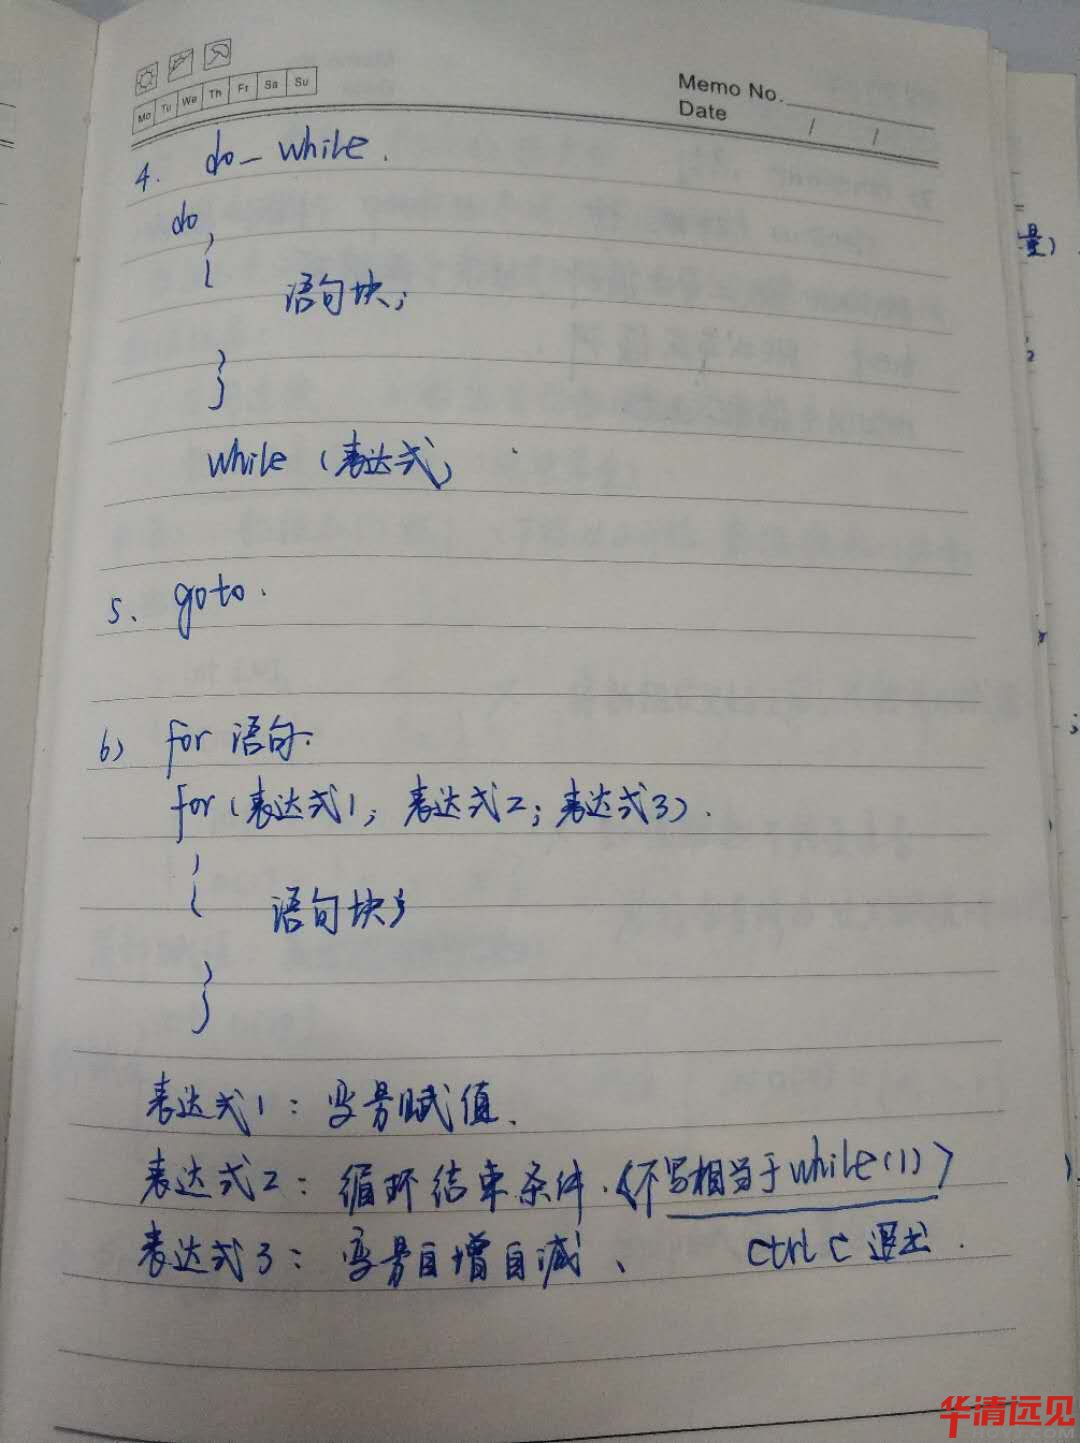 Mo Tu We Th Fr Sa Su
Memo No.
Date / /
4. do_while.
do
{
语句块;
}
while (表达式)
5. goto.
6) for 语句.
for (表达式1; 表达式2; 表达式3).
{
语句块;
}
表达式1: 变量赋值.
表达式2: 循环结束条件. (不写相当于while(1))
表达式3: 变量自增自减、 ctrl c 退出.
量)
华清远见
HQYJ.COM